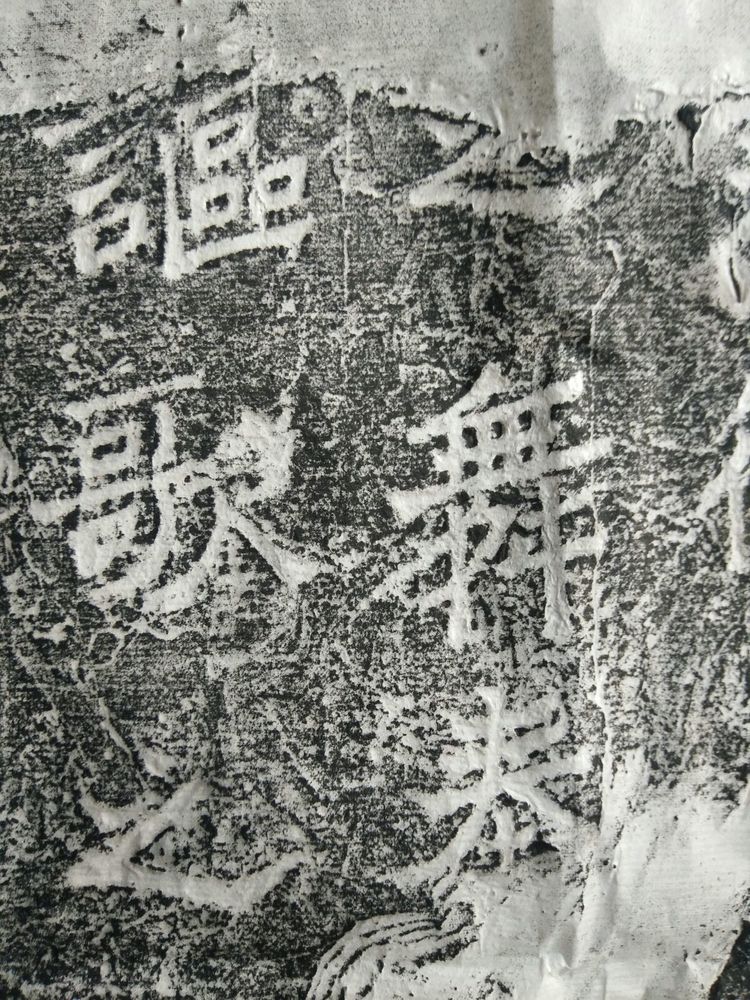 之舞来
謳歌之